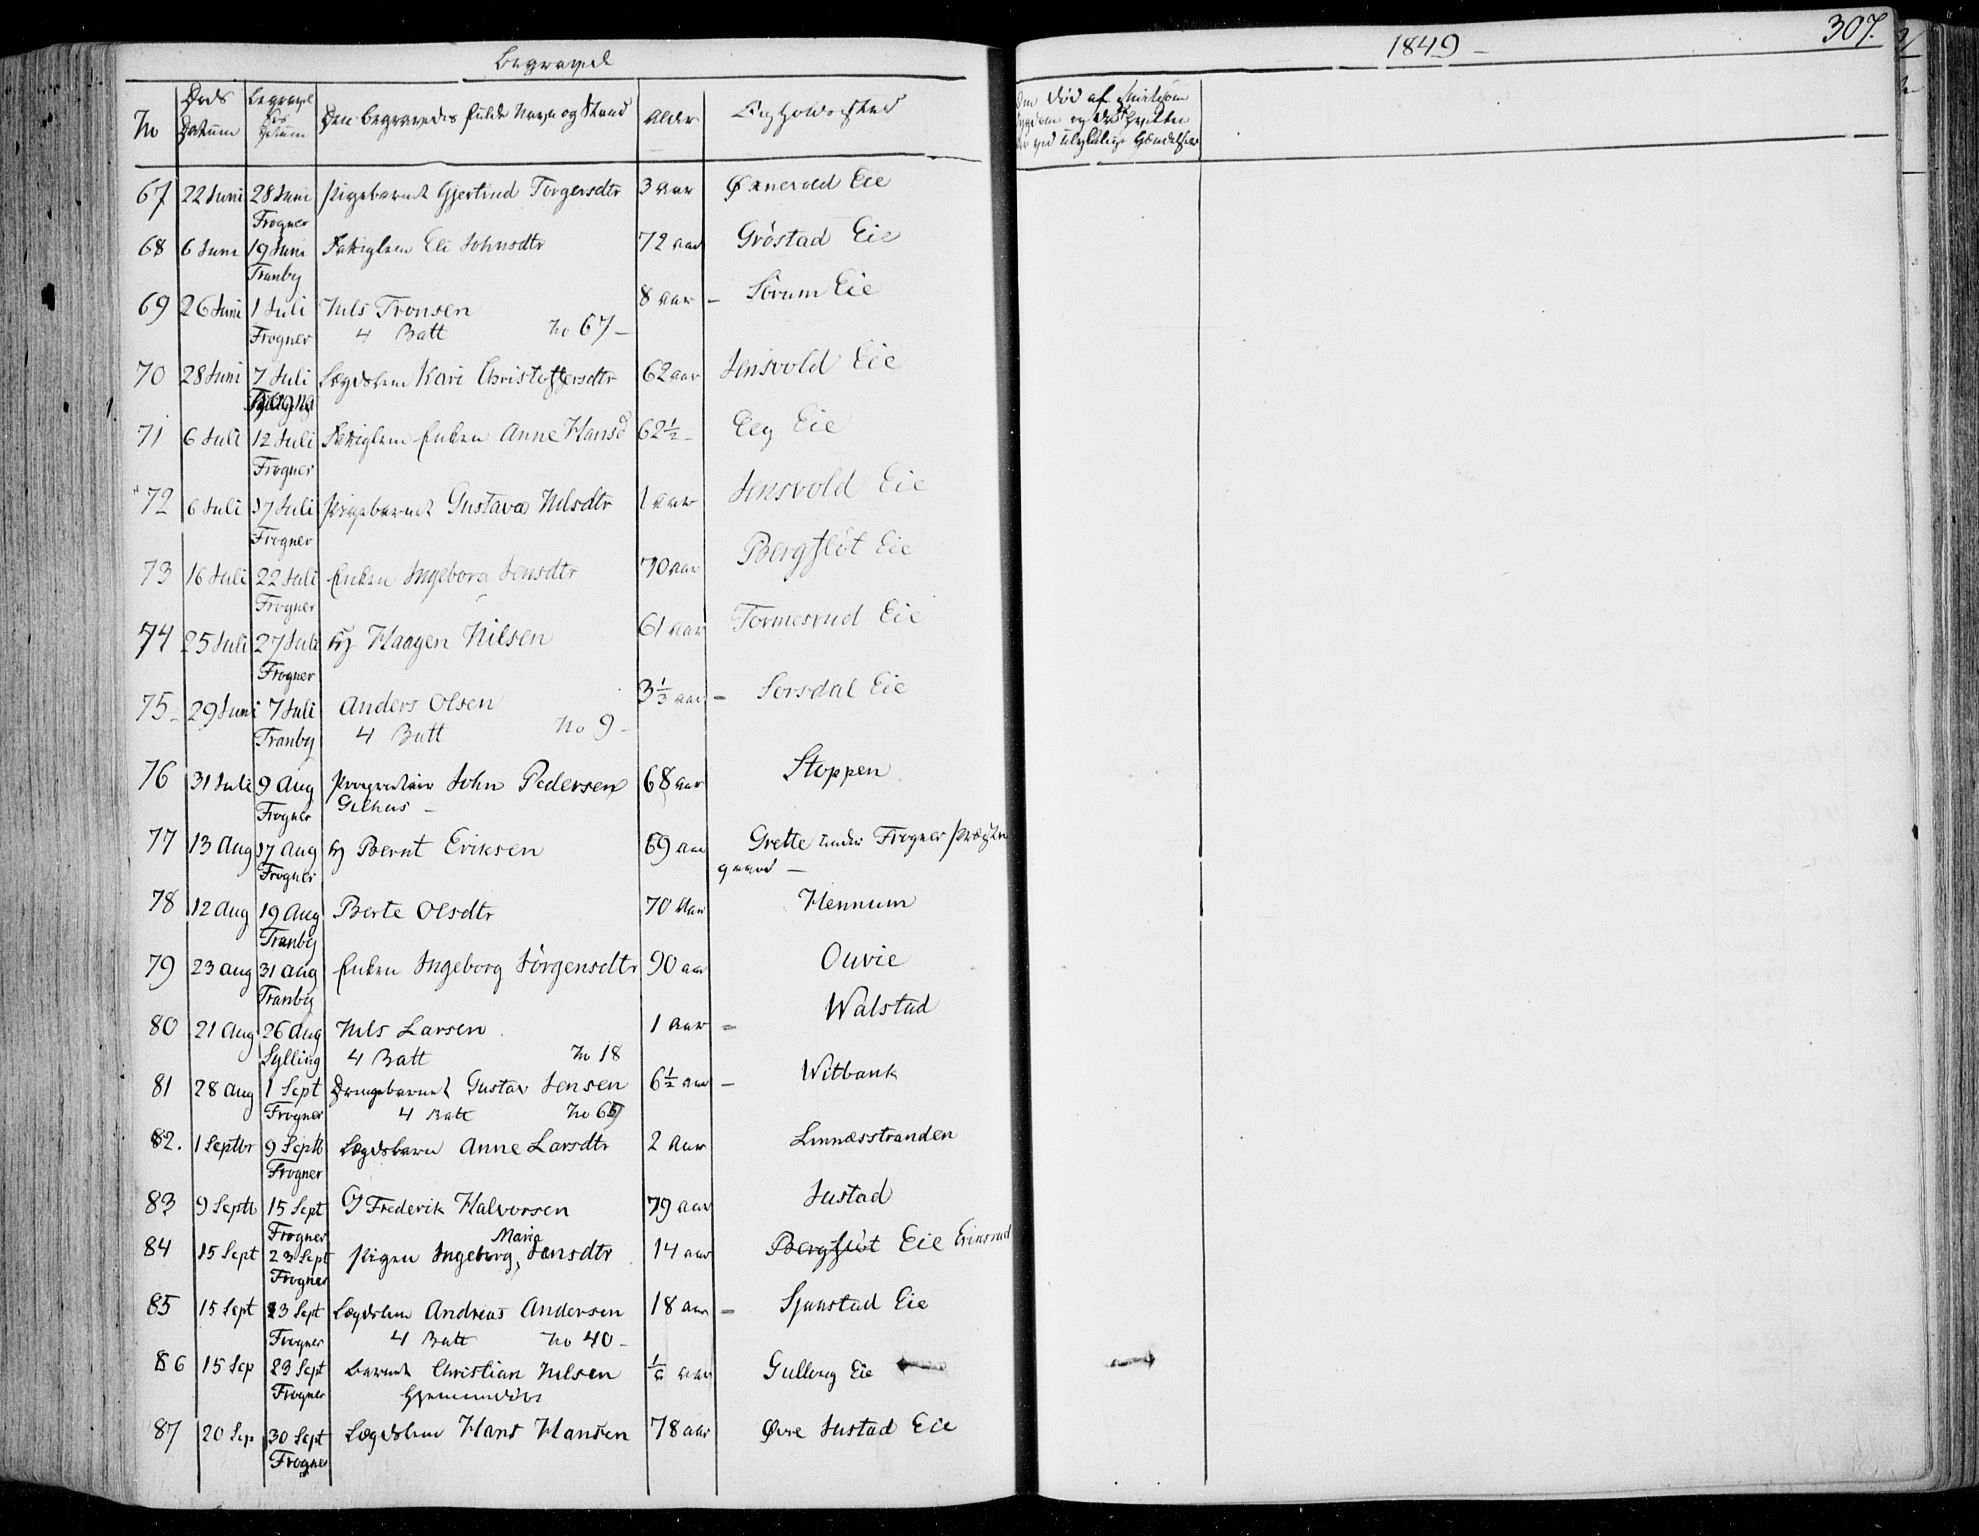 Begravede
1849 –
307.
No
Døds Datum
Begravelses Datum
Den Begravedes fulde Navn og Stand
Alder
Opholdssted
Om død af smitsom
Sygdom og
ved ulykkelige Hændelser
67 22 Juni 28 Juni Pigebarnet Gjertrud Torgersdtr 3 aar Øxnevold Eie
Frogner
68 6 Juni 19 Juni Fattiglem Eli Johnsdtr 72 aar Gröstad Eie
Tranby
69 26 Juni 1 Juli Nils Tronsen 8 aar – Sörum Eie
Frogner 4 Batt No 67 –
70 28 Juni 7 Juli Lægdslem Kari Christoffersdtr 62 aar Jensvold Eie
71 6 Juli 12 Juli Fattiglem Enken Anne Hansd 62 1/2 – Eeg Eie
Frogner
72 6 Juli 17 Juli Pigebarnet Gustava Nilsdtr 1 aar Jensvold Eie
Frogner
73 16 Juli 22 Juli Enken Ingeborg Jensdtr 70 aar Bergflöt Eie
Frogner
74 25 Juli 27 Juli Haagen Nilsen 61 aar Tormesrud Eie
Frogner
75 – 29 Juni 7 Juli Anders Olsen 3 1/3 aar – Sorsdal Eie
Tranby 4 Batt No 9 –
76 31 Juli 9 Aug Proprietair John Pedersen 68 aar Stoppen
Frogner Gilhus –
77 13 Aug 17 Aug Bernt Eriksen 69 aar Grette under Frogner Præste
Frogner gaard –
78 12 Aug 19 Aug Berte Olsdtr 70 Aar Hennum
Tranby
79 23 aug 31 aug Enken Ingeborg Jörgensdtr 90 aar Ouvie
Tranby
80 21 Aug 26 Aug Nils Larsen 1 Aar – Walstad
Sylling 4 Batt No 18
81 28 Aug 1 Sept Drengebarnet Gustav Jensen 6 1/2 Aar – Witbank
Frogner 4 Batt
82. 1 Septbr 9 Septb Lægdsbarn Anne Larsdtr 2 Aar Linnæsstranden
Frogner
83 9 Septb 15 Sept Frederik Halvorsen 79 aar Justad
Frogner
84 15 Sept 23 Sept Pigen Ingeborg Maria Jensdtr 14 aar Bergflöt Eie Eriksrud
Frogner
85 15 Sept 23 Sept Lægdslem Andreas Andersen 18 aar – Sjaastad Eie
Frogner 4 Batt No 40 –
86 15 Sep 23 Sept Barnet Christian Nilsen aar Gullaug Eie
Frogner Hjemmedöbt
87 20 Sep 30 Sept Lægdslem Hans Hansen 78 aar Övre Justad Eie
Frogner